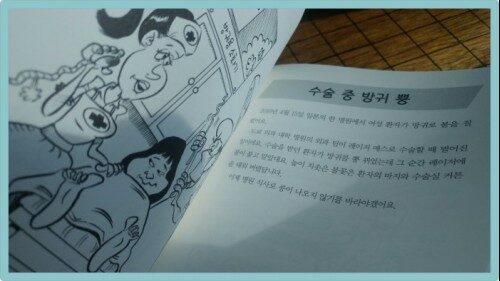 수술 중 방귀 뿡
2016년 4월 15일 일본의 한 병원에서 여성 환자가 방귀로 봉을
었어요.
도쿄 의과 대학 병원의 외과 팀이 레이저 메스로 수술할 때 벌어진
일이에요. 수술을 받던 환자가 방귀를 뿡 뀌었는데 그 순간 레이저에
불이 붙고 말았대요. 높이 치솟은 불꽃은 환자의 바지와 수술실 커튼
을 태워 버렸답니다.
이제 병원 식사로 콩이 나오지 않기를 바라야겠어요.